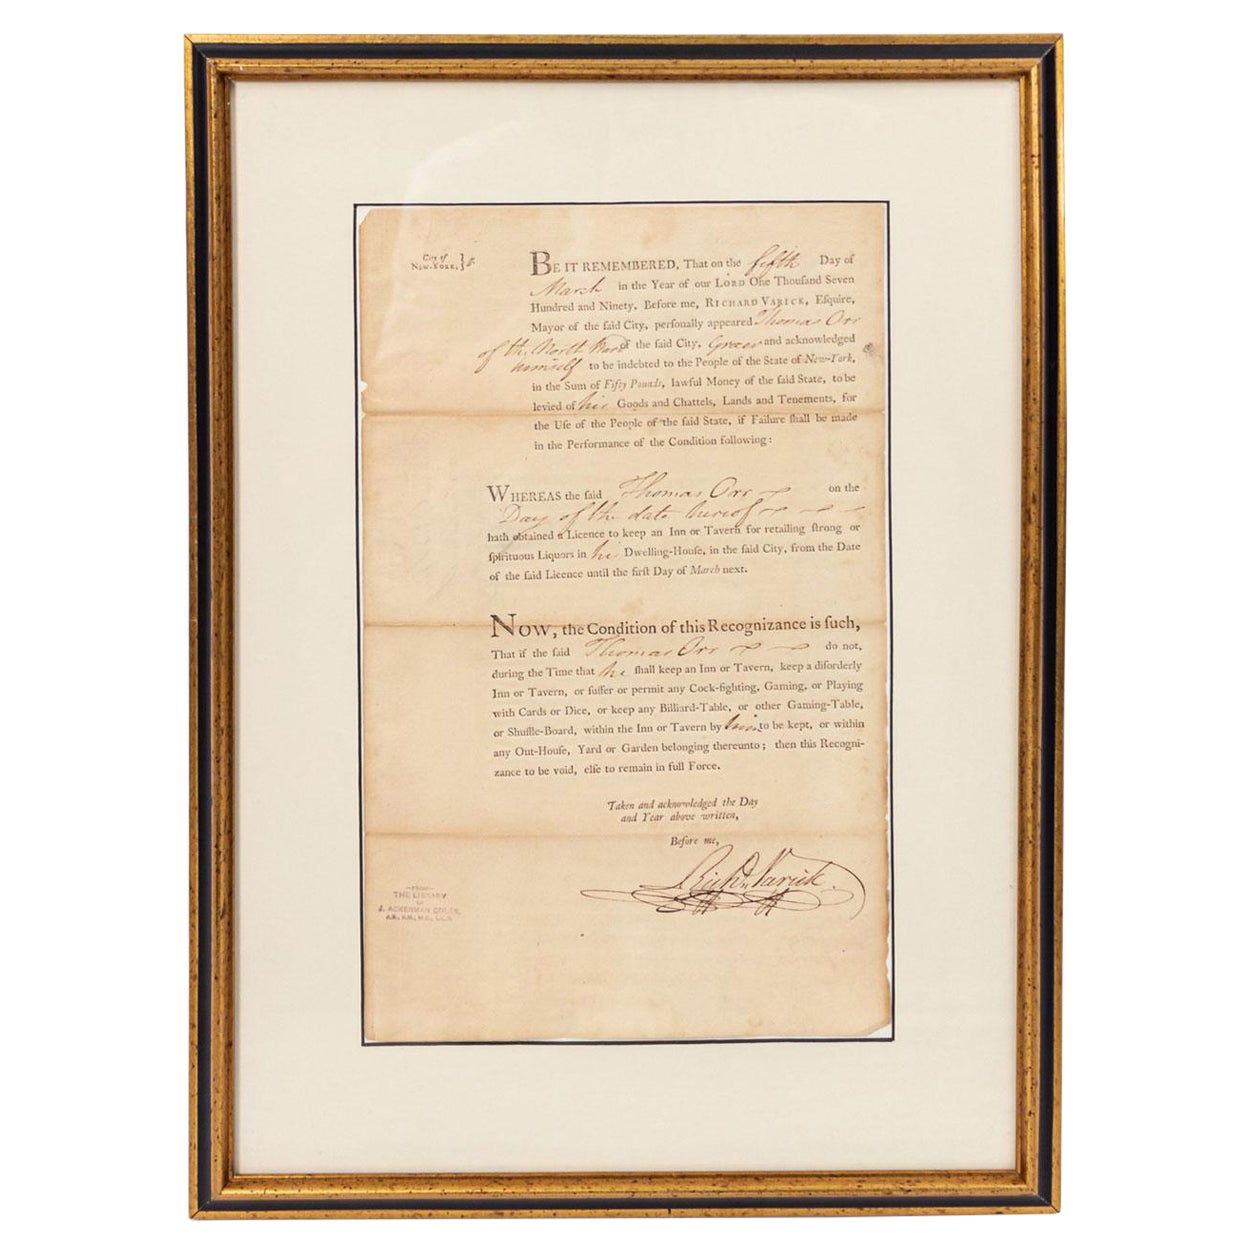 City of
NEW-YORK, } ſs.
BE IT REMEMBERED, That on the fifth Day of
March in the Year of our LORD One Thouſand Seven
Hundred and Ninety, Before me, RICHARD VARICK, Eſquire,
Mayor of the ſaid City, perſonally appeared Thomas Orr
of the North Ward of the ſaid City, Grocer and acknowledged
himself to be indebted to the People of the State of New-York,
in the Sum of Fifty Pounds, lawful Money of the ſaid State, to be
levied of his Goods and Chattels, Lands and Tenements, for
the Uſe of the People of the ſaid State, if Failure ſhall be made
in the Performance of the Condition following:
WHEREAS the ſaid Thomas Orr on the
Day of the date hereof
hath obtained a Licence to keep an Inn or Tavern for retailing ſtrong or
ſpirituous Liquors in his Dwelling-Houſe, in the ſaid City, from the Date
of the ſaid Licence until the firſt Day of March next.
NOW, the Condition of this Recognizance is ſuch,
That if the ſaid Thomas Orr do not,
during the Time that he ſhall keep an Inn or Tavern, keep a diſorderly
Inn or Tavern, or ſuffer or permit any Cock-fighting, Gaming, or Playing
with Cards or Dice, or keep any Billiard-Table, or other Gaming-Table,
or Shuffle-Board, within the Inn or Tavern by him to be kept, or within
any Out-Houſe, Yard or Garden belonging thereunto; then this Recogni-
zance to be void, elſe to remain in full Force.
Taken and acknowledged the Day
and Year above written,
Before me,
Richd. Varick.
—FROM—
THE LIBRARY
OF
J. ACKERMAN COLES,
A.B., A.M., M.D., LL.D.